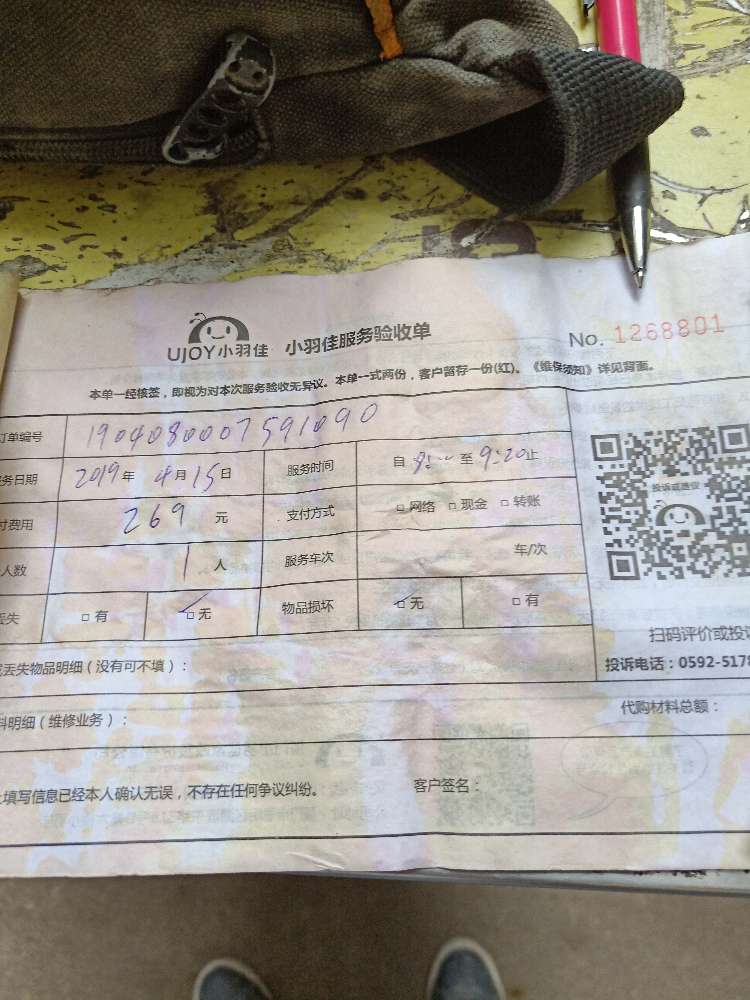 UJOY小羽佳 小羽佳服务验收单 No. 1268801
本单一经核签，即视为对本次服务验收无异议。本单一式两份，客户留存一份(红)。《维保须知》详见背面。
订单编号 1904080007591090
务日期 2019年 4月15日 服务时间 自 8:00 至 9:20止
付费用 269 元 支付方式 □网络 □现金 □转账
人数 1人 服务车次 车/次
丢失 □有 □无 物品损坏 □无 □有
投诉或建议
扫码评价或投诉
投诉电话：0592-5178
丢失物品明细（没有可不填）：
料明细（维修业务）： 代购材料总额：
上填写信息已经本人确认无误，不存在任何争议纠纷。 客户签名：